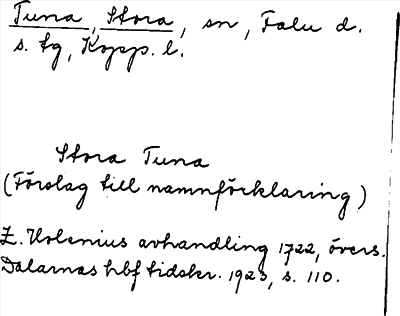 Tuna, Stora, sn, Falu d.
s. tg, Kopp. l.
Stora Tuna
(Förslag till namnförklaring)
Z. Holenius avhandling 1722, övers.
Dalarnas hbf tidskr. 1923, s. 110.